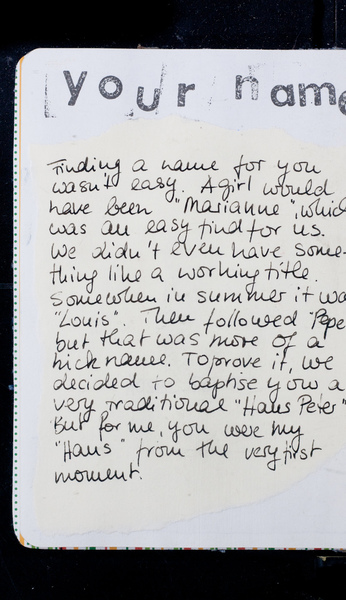 your name
Finding a name for you
wasn't easy. A girl would
have been "Marianne", which
was an easy find for us.
We didn't even have some-
thing like a working title.
Somewhen in summer it wa
"Louis". Then followed "Pepe
but that was more of a
nickname. To prove it, we
decided to baptise you a
very traditional "Hans Peter"
But for me, you were my
"Hans" from the very first
moment.